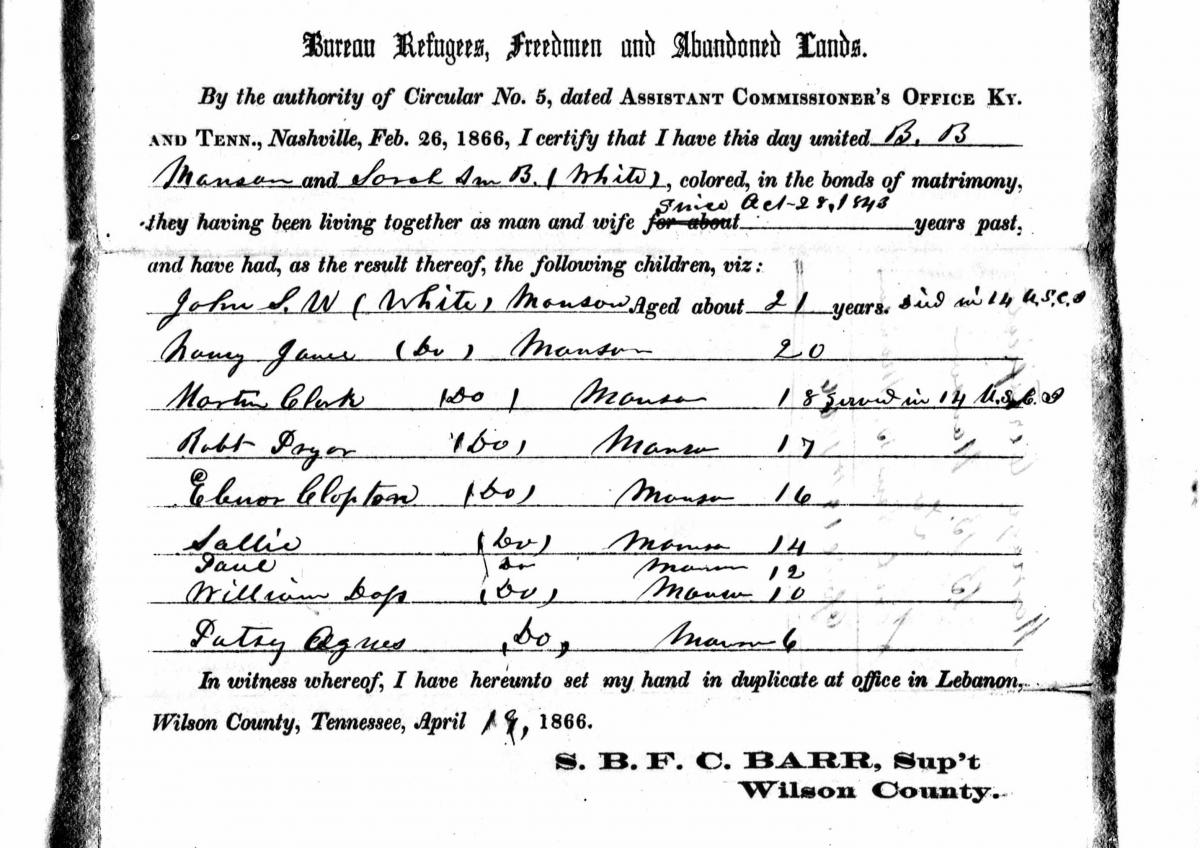 Bureau Refugees, Freedmen and Abandoned Lands.
By the authority of Circular No. 5, dated ASSISTANT COMMISSIONER'S OFFICE KY.
AND TENN., Nashville, Feb. 26, 1866, I certify that I have this day united B. B
Manson and Sarah Ann B. (White), colored, in the bonds of matrimony,
Since Oct-28, 1843
they having been living together as man and wife for about years past,
and have had, as the result thereof, the following children, viz:
John S. W (White) Manson Aged about 21 years. Died in 14 U.S.C.I
Nancy Jane (Do) Manson 20
Martin Clark (Do) Manson 18 Served in 14 U.S.C.I
Robt Pryor (Do) Manson 17
Elenor Clopton (Do) Manson 16
Sallie (Do) Manson 14
Paul Do Manson 12
William Doss (Do) Manson 10
Patsy Agnes (Do) Manson 6
In witness whereof, I have hereunto set my hand in duplicate at office in Lebanon,
Wilson County, Tennessee, April 19, 1866.
S. B. F. C. BARR, Sup't
Wilson County.